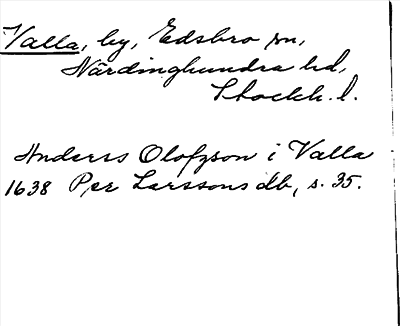 Valla, by, Edsbro sn,
Närdinghundra hd,
Stockh. l.
Anders Olofsson i Valla
1638 Per Larssons db, s. 35.